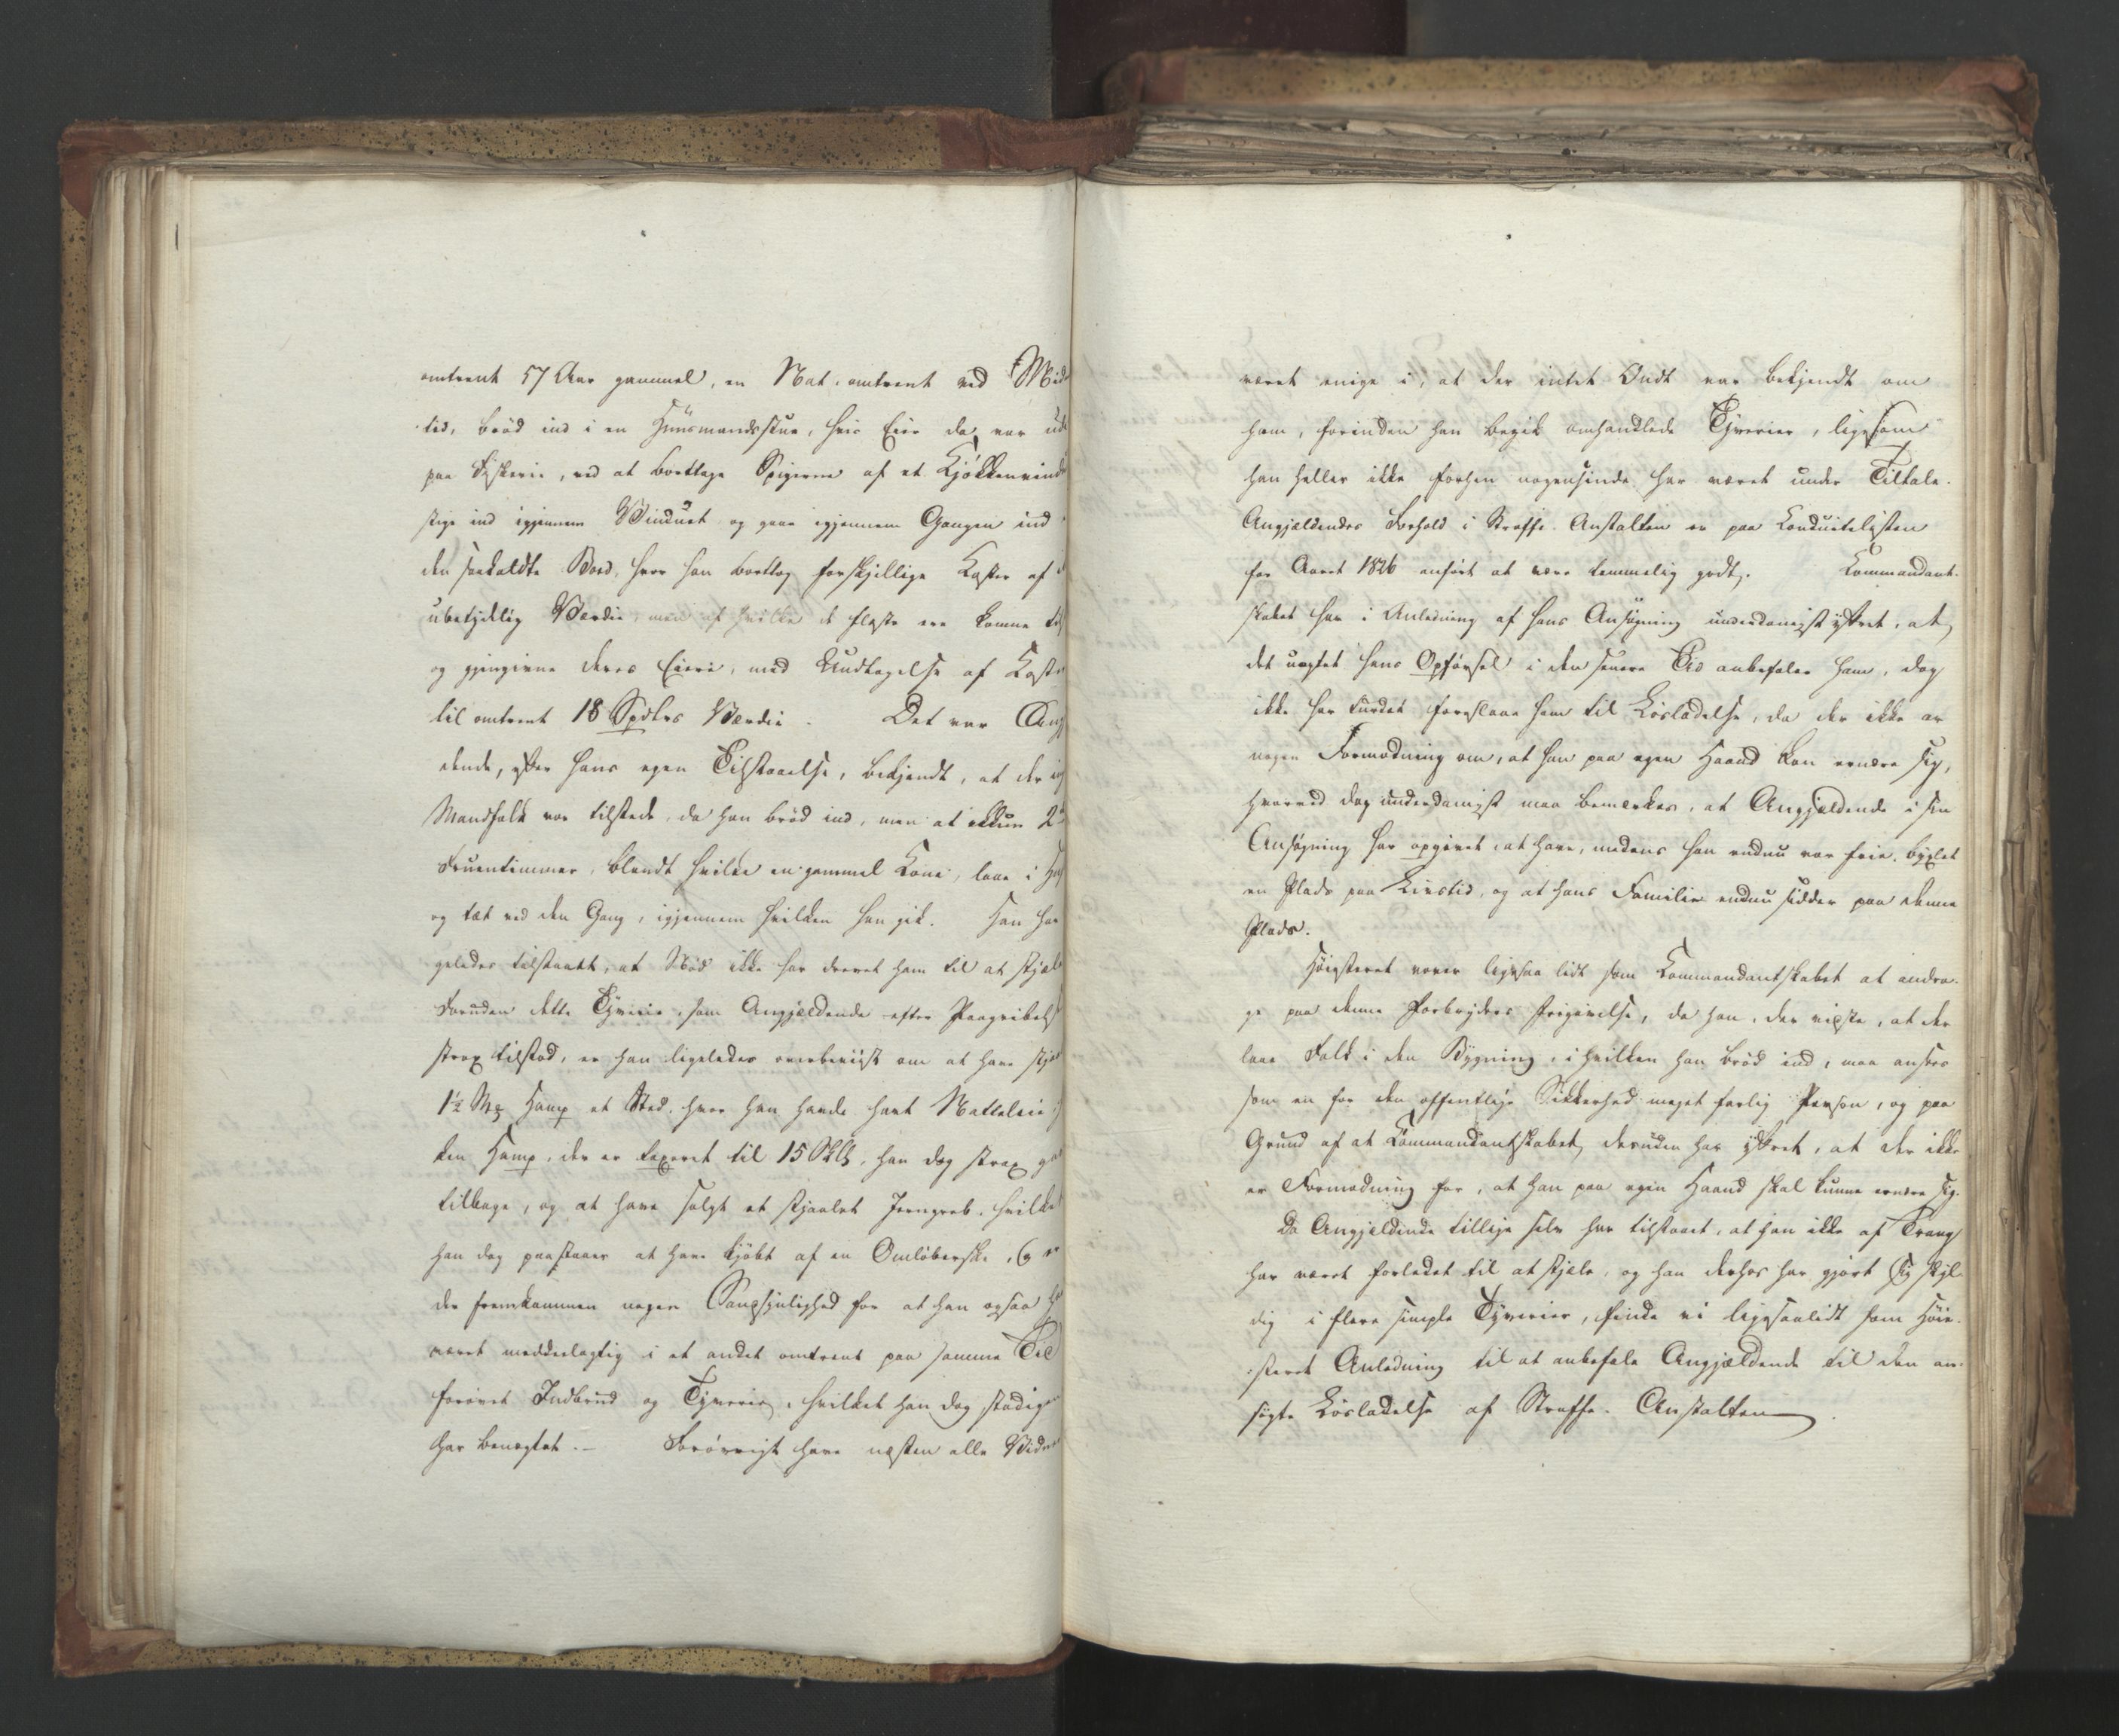 omtrent 57 Aar gammel, en Nat, omtrent ved Midn
tid, brød ind i en Huusmandsstue, hvis Eier da var ude
paa Fiskerie, ved at borttage Spigerne af et Kjøkkenvindu
stige ind igjennem Vinduet og gaae igjennem Gangen ind
den saakaldte Boed, hvor han borttog forskjellige Koster af
ubetydelig Værdie, men af hvilke de fleste ere komne til
og gjengivne deres Eiere, med Undtagelse af Koste
til omtrent 18 Spdlrs Værdie. Det var Angj
dende, efter hans egen Tilstaaelse, bekjendt, at der
Mandfolk var tilstede, da han brød ind, men at ikkun 2de
Fruentimmer, blandt hvilke en gammel Kone, laae i
og tæt ved den Gang, igjennem hvilken han gik. Han har
geledes tilstaaet, at Nød ikke har drevet ham til at stjæle
Foruden dette Tyverie, som Angjældende efter Paagribels
strax tilstod, er han ligeledes overbeviist om at have stjaa
1½ Hamp et Sted, hvor han havde havt Natteleie
ken Hamp, der er taxeret til 15 han dog strax
tilbage, og at have solgt et stjaalet Jerngreb, hvilke
han dog paastaaer at have kjøbt af en Omløberske, Og er
der fremkommen nogen Sandsynlighed for at han ogsaa
været meddeelagtig i et andet omtrent paa samme Tid
forøvet Indbrud og Tyverie, hvilket han dog stadigen
har benægtet. – Forøvrigt have næsten alle Vidne
været enige i, at der intet Ondt var bekjendt om
ham, forinden han begik omhandlede Tyverier, ligesom
han heller ikke forhen nogensinde har været under Tiltale.
Angjældendes Forhold i Straffe-Anstalten er paa Conduitelisten
for Aaret 1826 anført at være temmelig godt. Commandant-
skabet har i Anledning af hans Ansøgning underdanigst yttret, at
det uagtet hans Opførsel i den senere Tid anbefaler ham, dog
ikke har turdet foreslaae ham til Løsladelse, da der ikke er
nogen Formodning om, at han paa egen Haand kan ernære sig,
hvorved dog underdanigst maa bemærkes, at Angjældende i sin
Ansøgning har opgivet, at have, medens han endnu var frie, bygslet
en Plads paa Livstid, og at hans Familie endnu sidder paa denne
Plads.
Høiesteret vover ligesaa lidt som Commandantskabet at andra-
ge paa denne Forbryders Frigivelse, da han, der vidste, at der
laae Folk i den Bygning, i hvilken han brød ind, maa ansees
som en for den offentlige Sikkerhed meget farlig Person, og paa
Grund af at Commandantskabet desuden har yttret, at der ikke
er Formodning for, at han paa egen Haand skal kunne ernære sig.
Da Angjældende tillige selv har tilstaaet, at han ikke af Trang
har været forledet til at stjæle, og han derhos har gjort sig skyl-
dig i flere simple Tyverier, finde vi ligesaalidt som Høie-
steret Anledning til at anbefale Angjældende til den an-
søgte Løsladelse af Straffe-Anstalten.